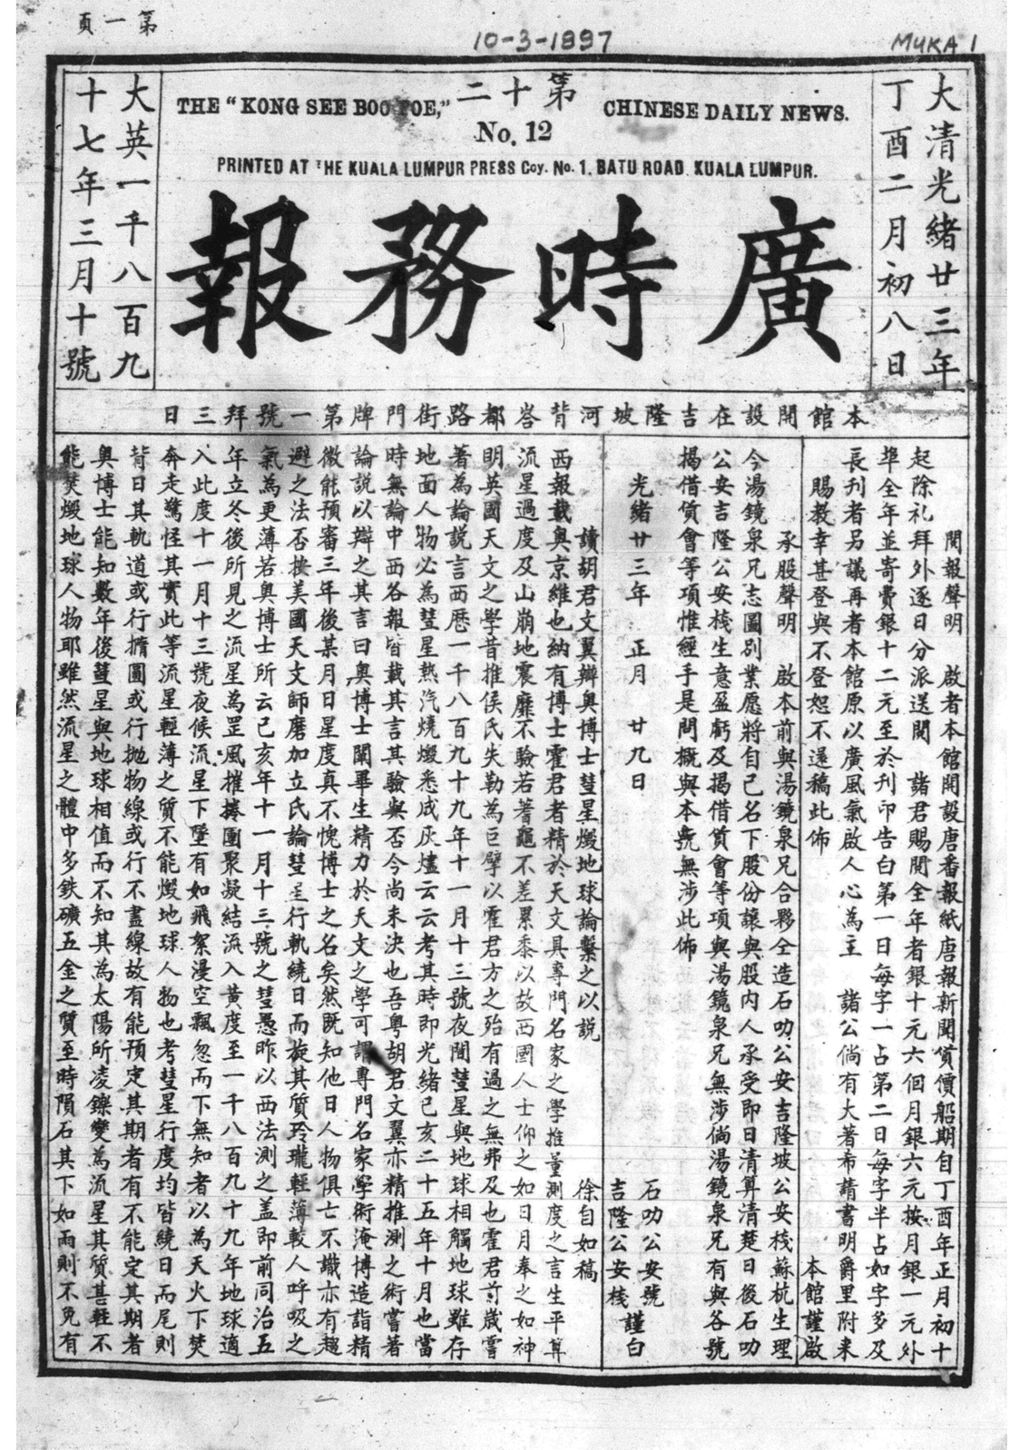 第一頁
10-3-1897
MUKA 1
大清光緒廿三年
丁酉二月初八日
第十二
THE "KONG SEE BOO POE," CHINESE DAILY NEWS.
No. 12
PRINTED AT THE KUALA LUMPUR PRESS Coy. No. 1, BATU ROAD, KUALA LUMPUR.
廣時務報
大英一千八百九
十七年三月十號
本館開設在吉隆坡河背峇都路街門牌第一號拜三日
閱報聲明 啟者本館開設唐番報紙唐報新聞貨價船期自丁酉年正月初十
起除礼拜外逐日分派送閱 諸君賜閱全年者銀十元六個月銀六元按月銀一元外
埠全年並寄費銀十二元至於刊印告白第一日每字一占第二日每字半占如字多及
長刊者另議再者本館原以廣風氣啟人心為主 諸公倘有大著希請書明爵里附來
賜教幸甚登與不登恕不還稿此佈 本館謹啟
承股聲明 啟本前與湯鏡泉兄合夥仝造石叻公安吉隆坡公安棧蘇杭生理
今湯鏡泉兄志圖別業愿將自己名下股份讓與股內人承受即日清算清楚日後石叻
公安吉隆公安棧生意盈虧及揭借貨會等項與湯鏡泉兄無涉倘湯鏡泉兄有與各號
揭借貨會等項惟經手是問概與本號無涉此佈
光緒廿三年 正月 廿九日 石叻公安號
吉隆公安棧 謹白
讀胡君文翼辯奧博士彗星燬地球論繫之以說 徐自如稿
西報載奧京維也納有博士霍君者精於天文具專門名家之學推量測度之言生平算
流星過度及山崩地震靡不驗若蓍龜不差累黍以故西國人士仰之如日月奉之如神
明英國天文之學昔推侯氏失勒為巨擘以霍君方之殆有過之無弗及也霍君前歲嘗
著為論說言西歷一千八百九十九年十一月十三號夜間彗星與地球相觸地球雖存
地面人物必為彗星熱汽燒燬悉成灰燼云云考其時即光緒己亥二十五年十月也當
時無論中西各報皆載其言其驗與否今尚未決也吾粵胡君文翼亦精推測之術嘗著
論說以辯之其言曰奧博士闡畢生精力於天文之學可謂專門名家學術淹博造詣精
微能預審三年後某月日星度真不愧博士之名矣然既知他日人物俱亡不識亦有趨
避之法否按美國天文師磨加立氏論彗星行軌繞日而旋其質玲瓏輕薄較人呼吸之
氣為更薄若奧博士所云己亥年十一月十三號之彗愚昨以西法測之蓋即前同治五
年立冬後所見之流星為罡風摧撐團聚凝結流入黃度至一千八百九十九年地球適
入此度十一月十三號夜候流星下墜有如飛絮漫空飄忽而下無知者以為天火下焚
奔走驚怪其實此等流星輕薄之質不能燬地球人物也考彗星行度均皆繞日而尾則
背日其軌道或行橢圓或行拋物線或行不盡線故有能預定其期者有不能定其期者
奧博士能知數年後彗星與地球相值而不知其為太陽所凌鑠變為流星其質甚輕不
能焚燬地球人物耶雖然流星之體中多鉄礦五金之質至時隕石其下如雨則不免有